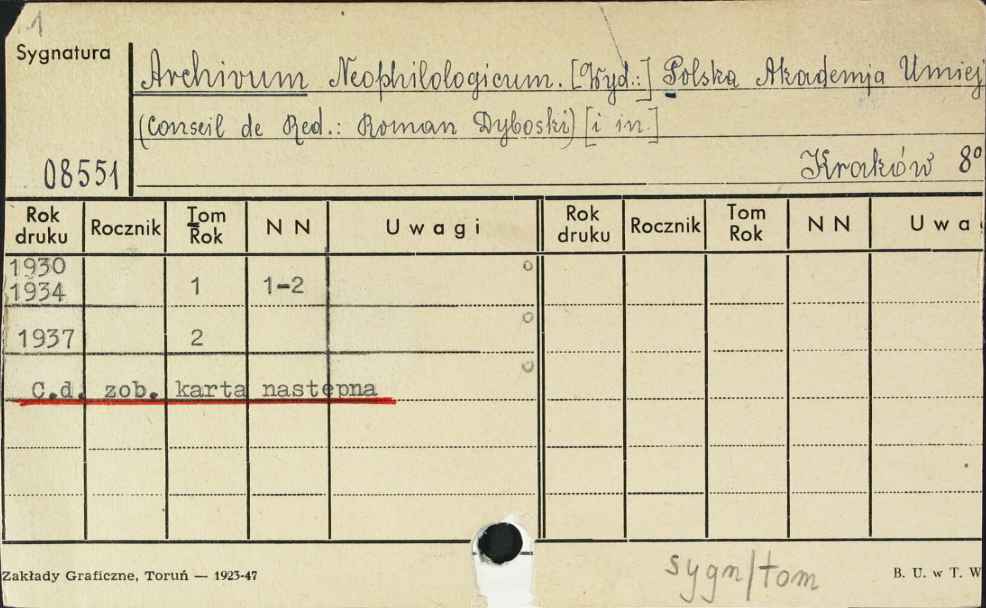 1
Sygnatura
Archivum Neophilologicum. [Wyd.:] Polska Akademja Umiej
(Conseil de Red.: Roman Dyboski) [i in.]
08551
Kraków 8º
Rok druku Rocznik Tom Rok N N Uwagi Rok druku Rocznik Tom Rok N N Uwag
1930
1934 1 1-2
1937 2
C.d. zob. karta następna
sygn/tom
Zakłady Graficzne, Toruń — 1923-47 B. U. w T. W